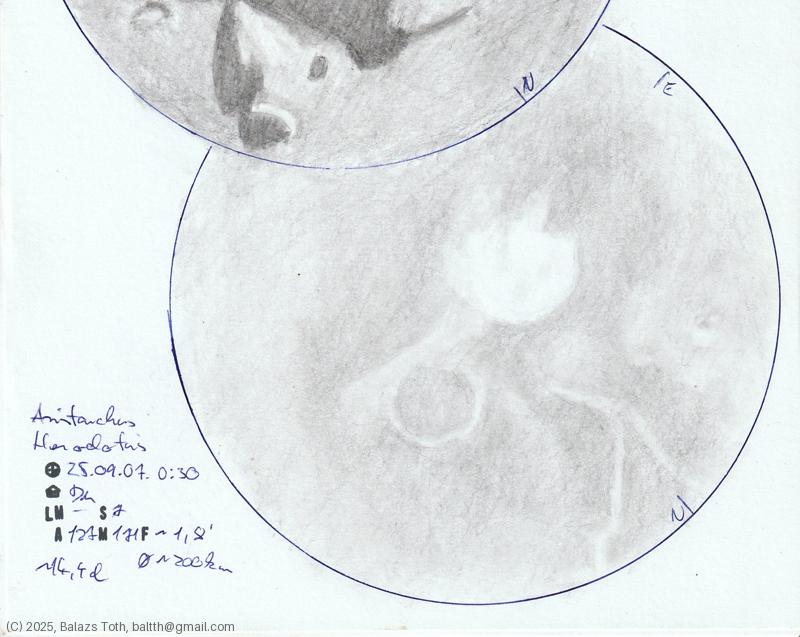 N
E
Aristarchus
Herodotus
25.09.07. 0:30
LM - S 7
A 127 M 171 F ~ 1,8'
~14,4d Ø ~ 200 km
N
(C) 2025, Balazs Toth, baltth@gmail.com